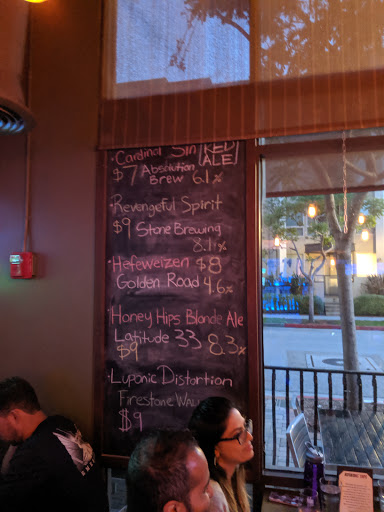 • Cardinal Sin [RED ALE]
$7 Absolution Brew 6.1%
• Revengeful Spirit
$9 Stone Brewing
8.1%
• Hefeweizen $8
Golden Road 4.6%
• Honey Hips Blonde Ale
Latitude 33 8.3%
$9
• Luponic Distortion
Firestone
$9